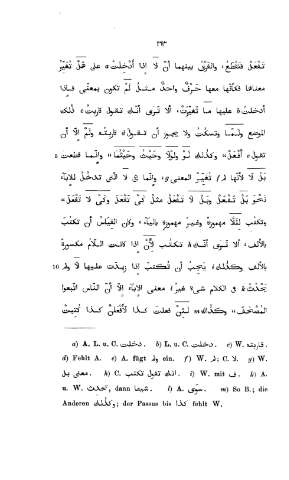 ٢٦٣
تفعلَ فتقطعُ، والفرق بينهما أن لا إذا أدخلتَ a على هَلْ تغيّر
معناها فكأنّها معها حرفٌ واحدٌ مثل لم تكون بمعنى فإذا
أدخلتَ b عليها ما تغيّرت، ألا ترى أنّك تقول قاربتُ c ذلك
الموضع ولمّا وتسكتُ ولا يجوز أن قاربته ولم إلّا أن
5 تقول d أفعلْ e وكذلك لو ولولا وحيث وحيثما e وإنّما قطعت
بل لا لأنّها لم f تغيّر المعنى g وإنّما هي لا التي تدخل للإباء
نحو بل تفعل وبل لا تفعل مثل كي تفعل وكي لا تفعل
وتكتب لئلّا مهموزةً وغير مهموزةٍ بالياء h وكان القياس أن تكتب
بالألف، ألا ترى أنّك i تكتب لأنْ إذا كانت اللام مكسورةً
10 بالألف وكذلك k يجب أن تُكتب إذا زيدت عليها لا ولم
يحدث l في الكلام شيء غير l معنى الإباء إلّا أنّ الناس اتّبعوا
المصحف، وكذلك m لئن فعلت كذا لأفعلنّ كذا كُتبت
a) A. L. u. C. دخلت. b) L. u. C. دخلت. c) W. قاربته.
d) Fehlt A. e) A. fügt ولم ein. f) W. لم; C. لا. g) W.
معنى بل. h) C. أنك تقول تكتب. i) W. mit ف. k) A.
u. W. تحدث, dann شيئا. l) A. سوى. m) So B.; die
Anderen وكذلك; der Passus bis كذا fehlt W.